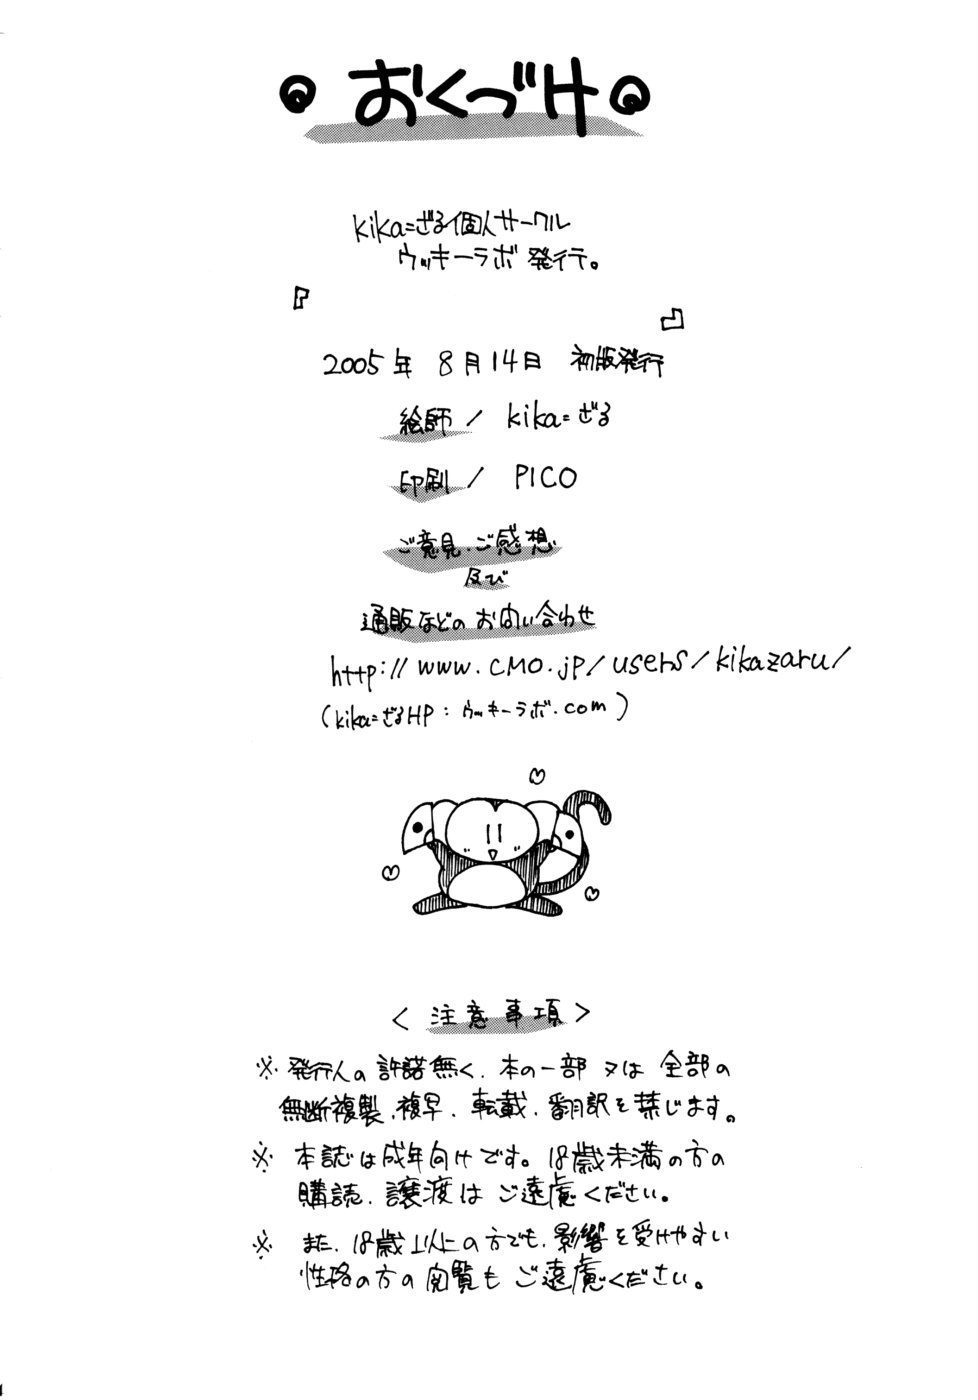 おくづけ
kika=ざる個人サークル
ウッキーラボ 発行。
『
』
2005年 8月14日 初版発行
絵師 / kika=ざる
印刷 / PICO
ご意見、ご感想
及び
通販などの お問い合わせ
http://www.cmo.jp/users/kikazaru/
(kika=ざるHP:ウッキーラボ.com)
<注意事項>
※ 発行人の許諾無く、本の一部 又は 全部の
無断複製、複写、転載、翻訳を禁じます。
※ 本誌は成年向けです。18歳未満の方の
購読、譲渡は ご遠慮ください。
※ また、18歳以上の方でも、影響を受けやすい
性格の方の閲覧も ご遠慮ください。